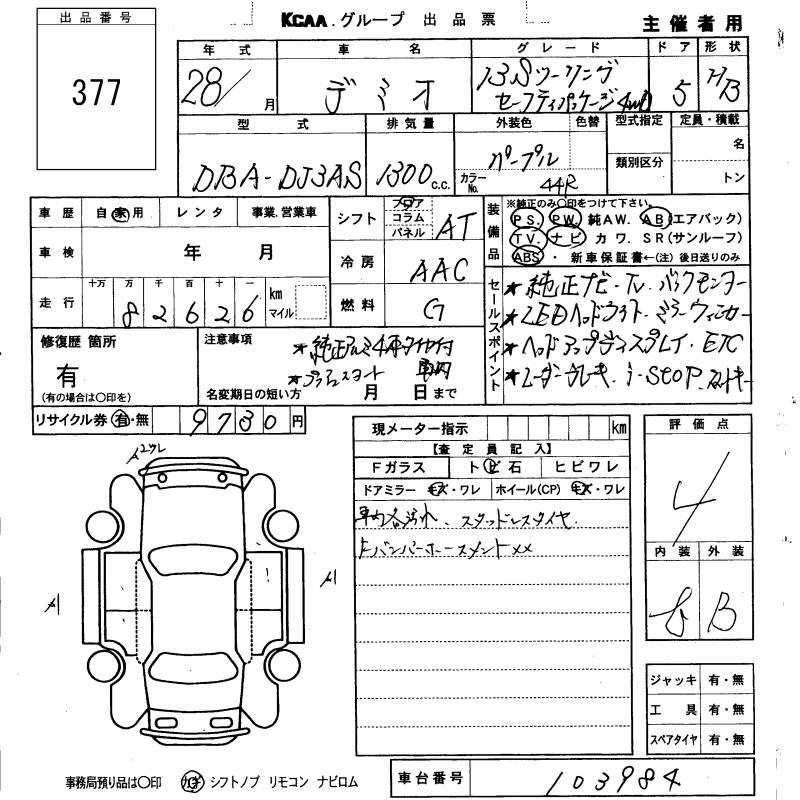 出品番号
377
KCAA.グループ 出品票
主催者用
年式 車名 グレード ドア 形状
28/ 月 デミオ 13Sツーリング セーフティパッケージ4WD 5 HB
型式 排気量 外装色 色替 型式指定 定員・積載
DBA-DJ3AS 1300 c.c. パープル 類別区分 名
カラーNo. 44R トン
車歴 自家用 レンタ 事業.営業車
車検 年 月
走行 十万 万 千 百 十 一 km マイル
82626
シフト フロア コラム パネル AT
冷房 AAC
燃料 G
装備品
※純正のみ〇印をつけて下さい。
PS. PW. 純AW. AB(エアバック)
TV. ナビ カワ. SR(サンルーフ)
ABS・新車保証書←(注)後日送りのみ
セールスポイント
★純正ナビ・TV バックモニター
★LEDヘッドライト・ミラーウィンカー
★ヘッドアップディスプレイ・ETC
修復歴 箇所
有
(有の場合は〇印を)
注意事項
★純正アルミ4本タイヤ付
名変期日の短い方 月 日まで
リサイクル券 有・無 9730円
現メーター指示 km
【査定員記入】
Fガラス トビ石 ヒビワレ
ドアミラー キズ・ワレ ホイール(CP) キズ・ワレ
車内合汚れ、スタッドレスタイヤ.
評価点
4
内装 外装
B
A1
A1
ジャッキ 有・無
工具 有・無
スペアタイヤ 有・無
事務局預り品は〇印 カギ シフトノブ リモコン ナビロム
車台番号 103984